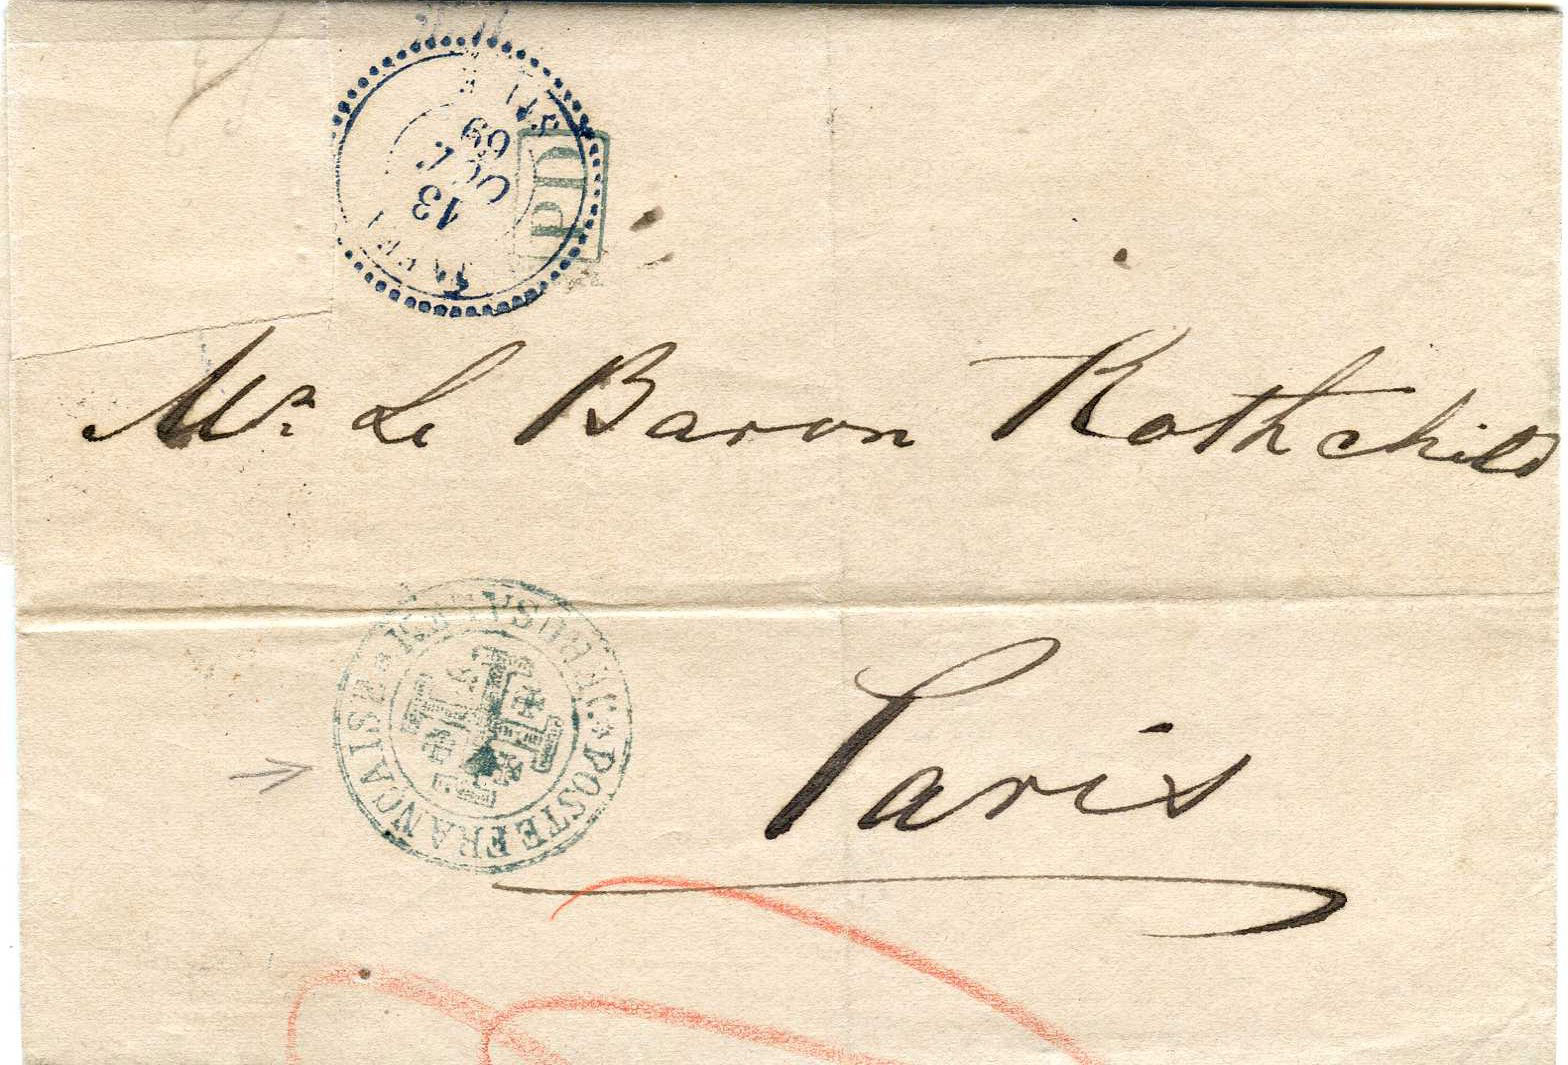 13
OCT.
69
PD
Mr. Le Baron Rothchild
JERUSALEM * POSTE FRANÇAISE *
Paris